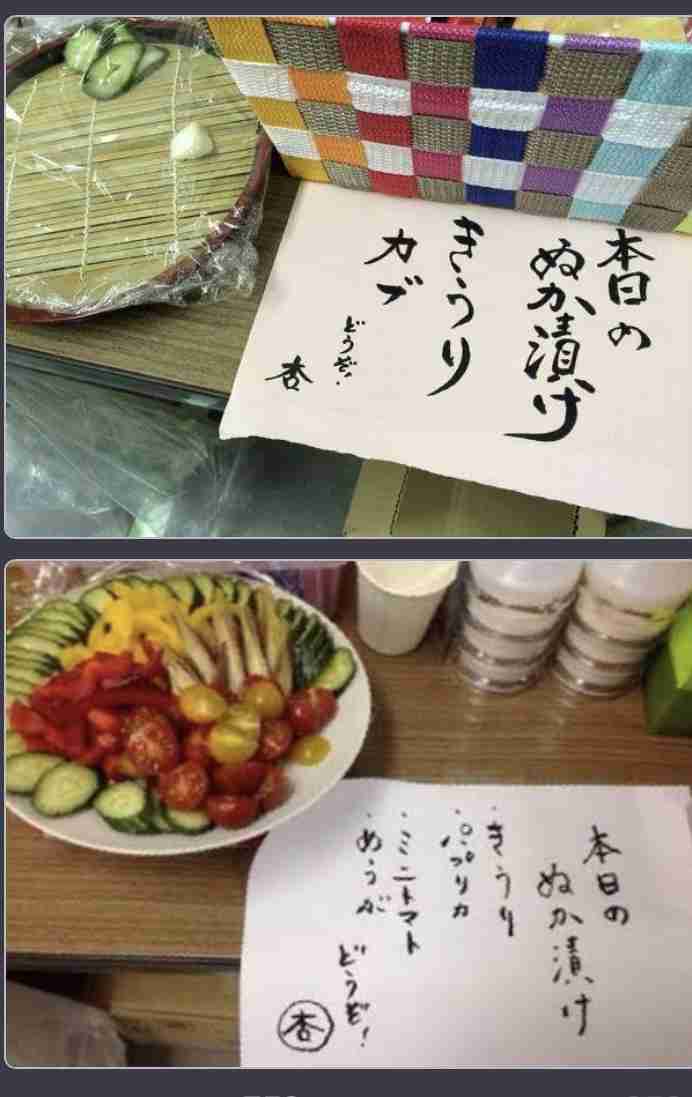 本日の
ぬか漬け
きうり
カブ
どうぞ!
杏
本日の
ぬか漬け
・きうり
・パプリカ
・ミニトマト
・めうが
どうぞ!
杏